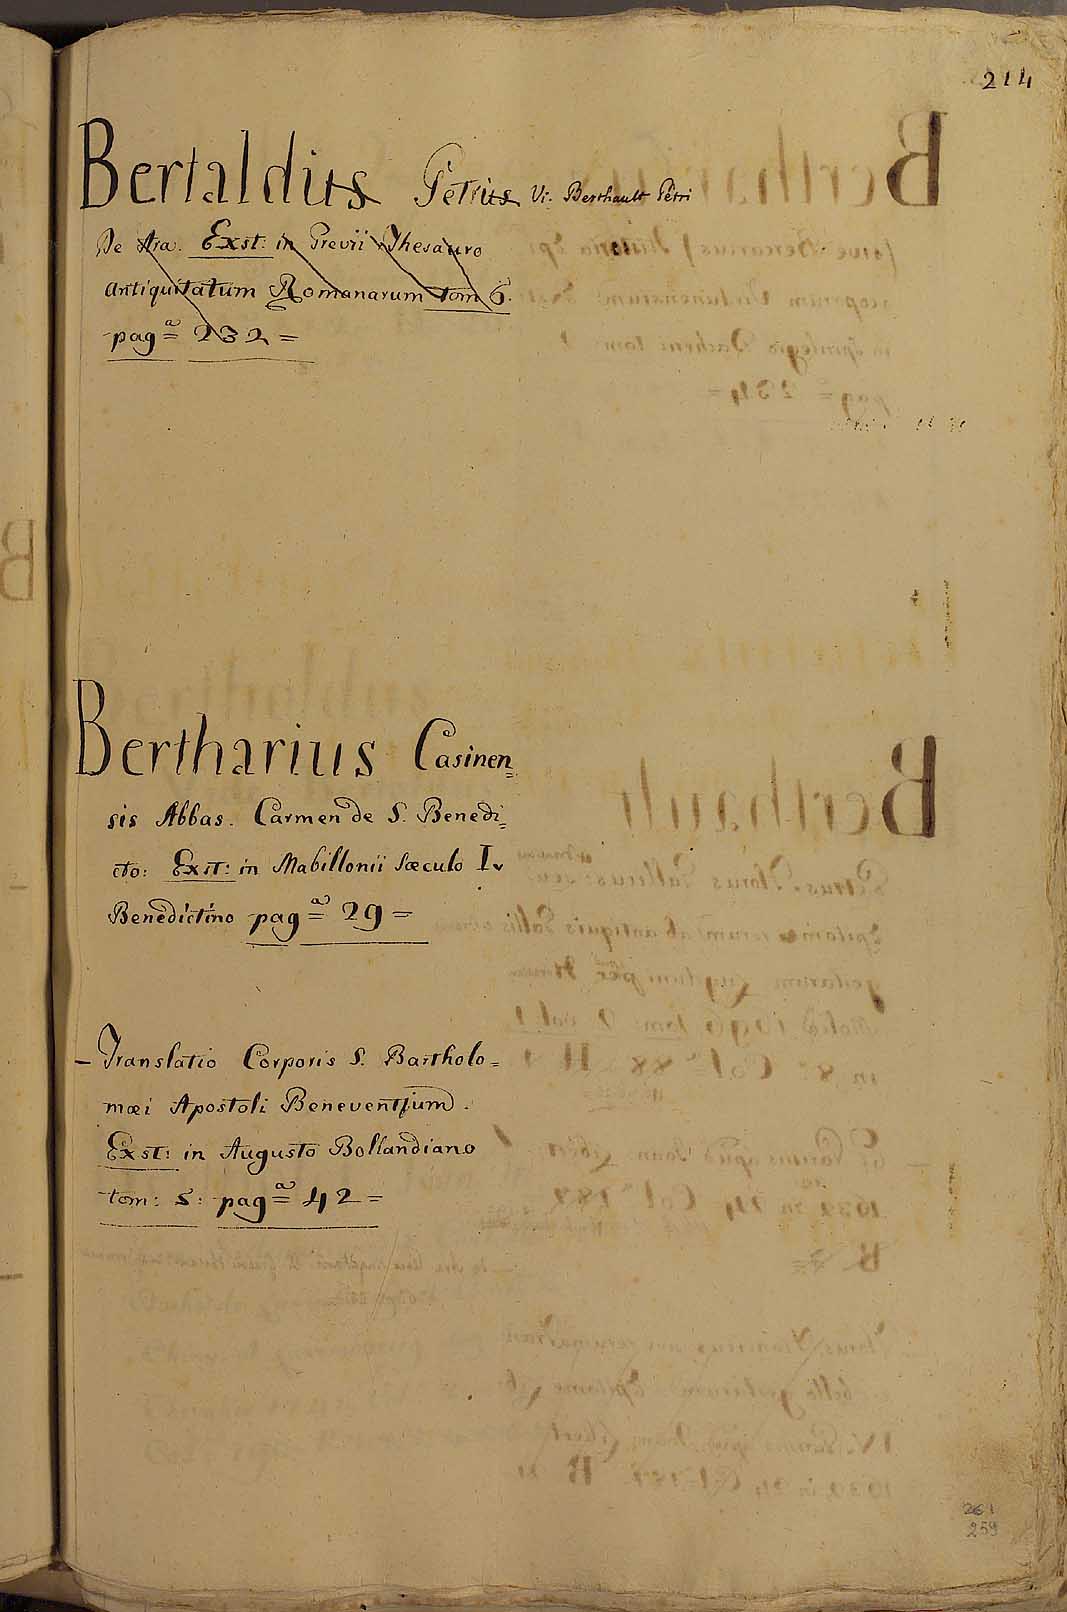 214
Bertaldus Petrus Vi: Berthault Petri
De Ara. Exst: in Grevii Thesauro
Antiquitatum Romanarum tom 6.
pagª 232 =
Bertharius Casinen=
sis Abbas. Carmen de S. Benedi=
cto: Exst: in Mabillonii Sæculo Iv
Benedictino pagª 29 =
– Translatio Corporis S. Bartholo=
mæi Apostoli Beneventum.
Exst: in Augusto Bollandiano
tom: 5: pagª 42 =
261
259